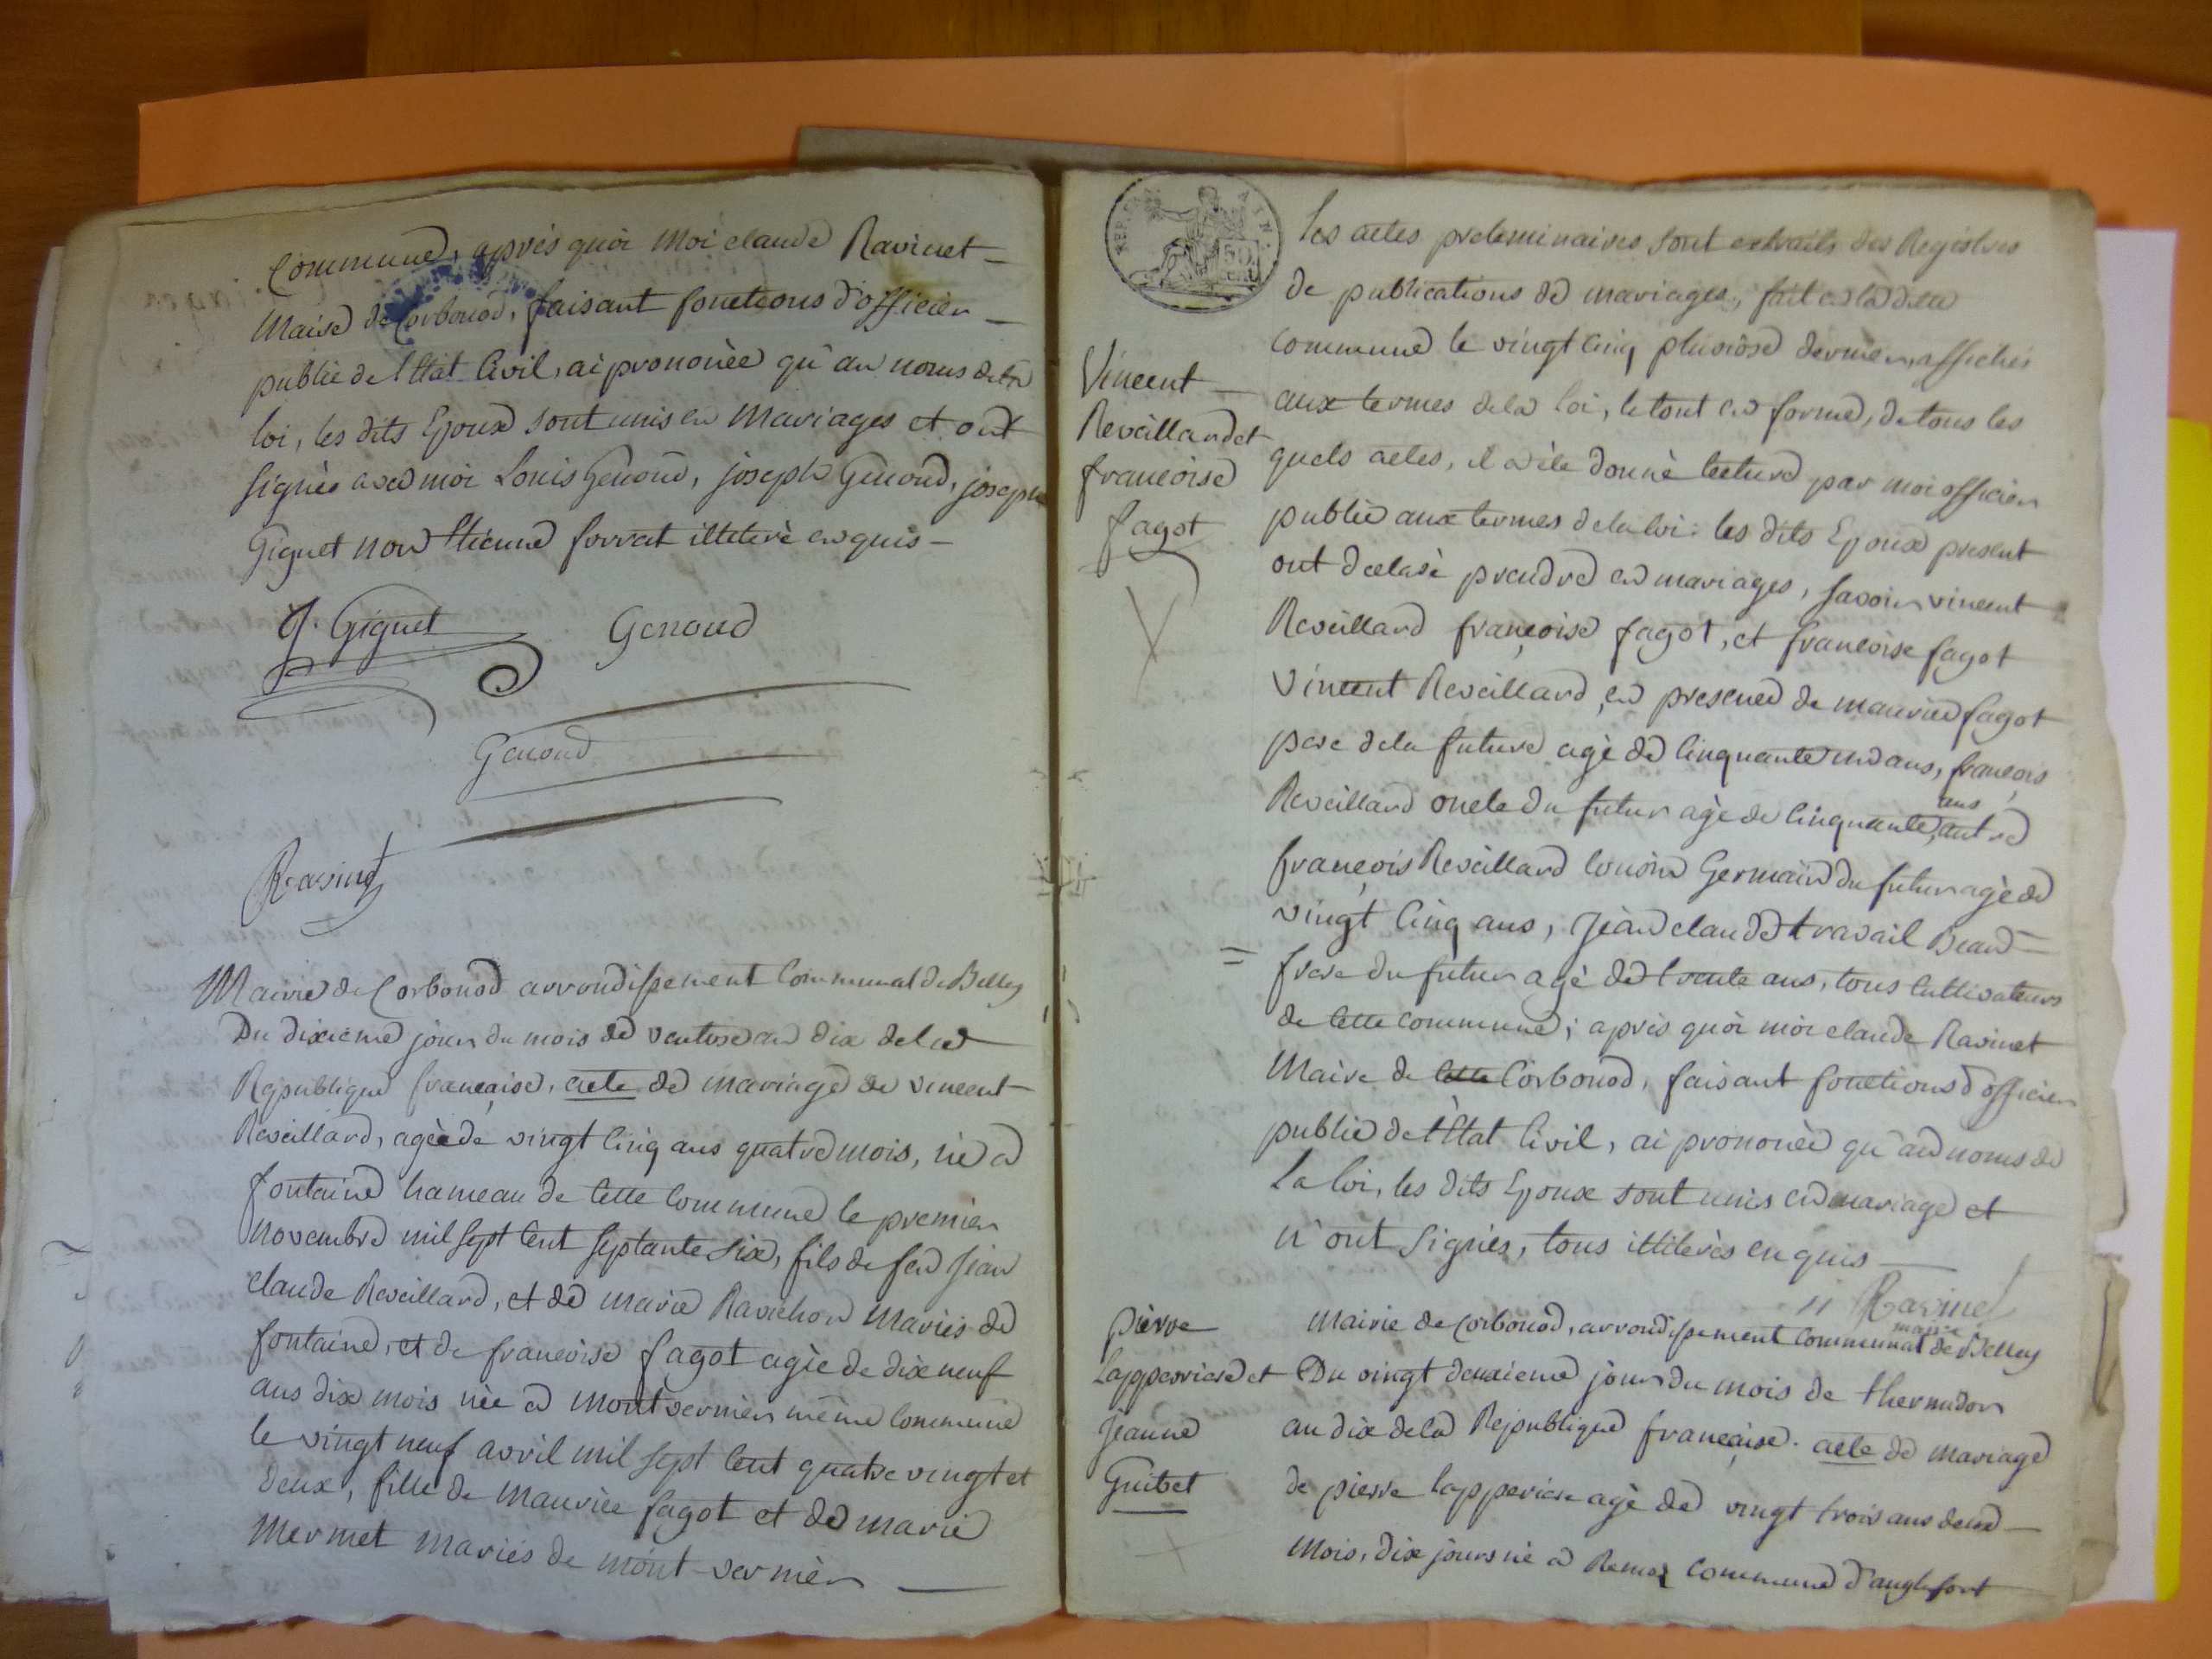 Commune, après quoi moi claude Ravinet
Maire de Corbonod, faisant fonctions d'officier
public de l'Etat Civil, ai prononcée qu'au noms de la
loi, les dits Epoux sont unis en Mariages et ont
signés avec moi Louis Genoud, joseph Genoud, joseph
Giguet non Etienne forrat illeterè enquis
J. Giguet
Genoud
Genoud
Ravinet
Mairie de Corbonod arrondissement Communal de Belley
Du dixième jour du mois de ventose an dix de la
Republique française, acte de mariage de vincent
Reveillard, agèe de vingt cinq ans quatre mois, nè a
fontaine hameau de cette commune le premier
novembre mil sept cent septante six, fils de feu jean
claude Reveillard, et de marie Ravichon mariés de
fontaine, et de francoise fagot agèe de dix neuf
ans dix mois nèe a montvernier même commune
le vingt neuf avril mil sept cent quatre vingt et
deux, fille de maurice fagot et de marie
mermet mariés de mont-vernièr
REP. FRA.
AIN.
50 cent.
Les actes preleminaires sont extraits des Registres
de publications de mariages, fait en la dite
commune le vingt cinq pluviose dernier, affichés
aux termes de la loi, le tout en forme, de tous les
quels actes, il a été donné lecture par moi officier
public aux termes de la loi: les dits Epoux present
ont declaré prendre en mariages, savoir vincent
Reveillard françoise fagot, et francoise fagot
vincent Reveillard, en presence de maurice fagot
pere de la future agè de cinquante un ans, françois
Reveillard oncle du futur agè de cinquante ans, autre
françois Reveillard cousin Germain du futur agè de
vingt cinq ans, jean claude travail Beau=
=frere du futur agè de trente ans, tous cultivateurs
de cette commune; après quoi moi claude Ravinet
Maire de cette Corbonod, faisant fonctions d'officier
public de l'Etat Civil, ai prononcée qu'au noms de
La loi, les dits Epoux sont unis en mariage et
n'ont signés, tous illiterès enquis
Ravinet
maire
Vincent
Reveillard et
françoise
fagot
pierre
Lapperriere et
Jeanne
Guibet
Mairie de Corbonod, arrondissement communal de Belley
Du vingt deuxieme jour du mois de thermidor
an dix de la Republique française. acte de mariage
de pierre lapperiere agè de vingt trois ans deux
mois, dix jours nè a Remoz commune d'anglefort